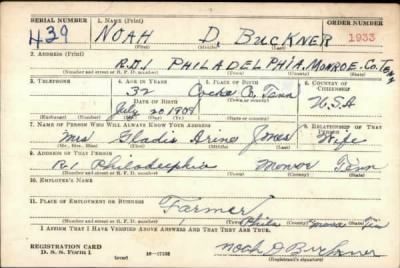 SERIAL NUMBER 1. NAME (Print) ORDER NUMBER
439 NOAH D. BUCKNER 1933
(First) (Middle) (Last)
2. ADDRESS (Print)
R.D.1 PHILADELPHIA, MONROE. Co. Ten
(Number and street or R. F. D. number) (Town) (County) (State)
3. TELEPHONE 4. AGE IN YEARS 5. PLACE OF BIRTH 6. COUNTRY OF CITIZENSHIP
32 Cocke Co. Tenn
DATE OF BIRTH
July 20 1909 U.S.A
(Exchange) (Number) (Mo.) (Day) (Yr.) (Town or county) (State or country)
7. NAME OF PERSON WHO WILL ALWAYS KNOW YOUR ADDRESS 8. RELATIONSHIP OF THAT PERSON
Mrs Gladis Jones Wife
(Mr., Mrs., Miss) (First) (Middle) (Last)
9. ADDRESS OF THAT PERSON
R1 Philadelphia Monroe Tenn
(Number and street or R. F. D. number) (Town) (County) (State)
10. EMPLOYER'S NAME
11. PLACE OF EMPLOYMENT OR BUSINESS
Farmer Phila Monroe Ten
(Number and street or R. F. D. number) (Town) (County) (State)
I AFFIRM THAT I HAVE VERIFIED ABOVE ANSWERS AND THAT THEY ARE TRUE.
REGISTRATION CARD
D. S. S. Form 1 (over) 16-17105 Noah D Buckner
(Registrant's signature)